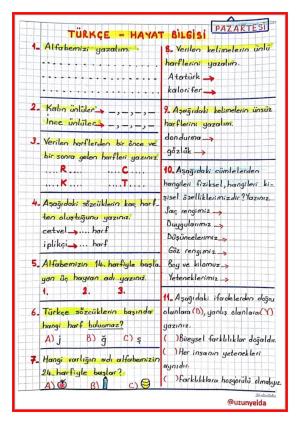 TÜRKÇE - HAYAT BİLGİSİ
PAZARTESİ
1- Alfabemizi yazalım.
2- Kalın ünlüler → -,-,-,-
İnce ünlüler → -,-,-,-
3- Verilen harflerden bir önce ve
bir sonra gelen harfleri yazınız.
.... R .... .... C ....
.... K .... .... T ....
4- Aşağıdaki sözcüklerin kaç harf-
ten oluştuğunu yazınız.
cetvel → .... harf
iplikçi → .... harf
5- Alfabemizin 14. harfiyle başla-
yan üç hayvan adı yazınız.
1. 2. 3.
6- Türkçe sözcüklerin başında
hangi harf bulunmaz?
A) j B) ğ C) ş
7- Hangi varlığın adı alfabemizin
24. harfiyle başlar?
A) B) C)
8- Verilen kelimelerin ünlü
harflerini yazalım.
Atatürk →
kalorifer →
9- Aşağıdaki kelimelerin ünsüz
harflerini yazalım.
dondurma →
gözlük →
10- Aşağıdaki cümlelerden
hangileri fiziksel, hangileri ki-
şisel özelliklerimizdir? Yazınız.
Saç rengimiz →
Duygularımız →
Düşüncelerimiz →
Göz rengimiz →
Boy ve kilomuz →
Yeteneklerimiz →
11- Aşağıdaki ifadelerden doğru
olanlara (D), yanlış olanlara (Y)
yazınız.
( ) Bireysel farklılıklar doğaldır.
( ) Her insanın yetenekleri
aynıdır.
( ) Farklılıklara hoşgörülü olmalıyız.
@uzunyelda